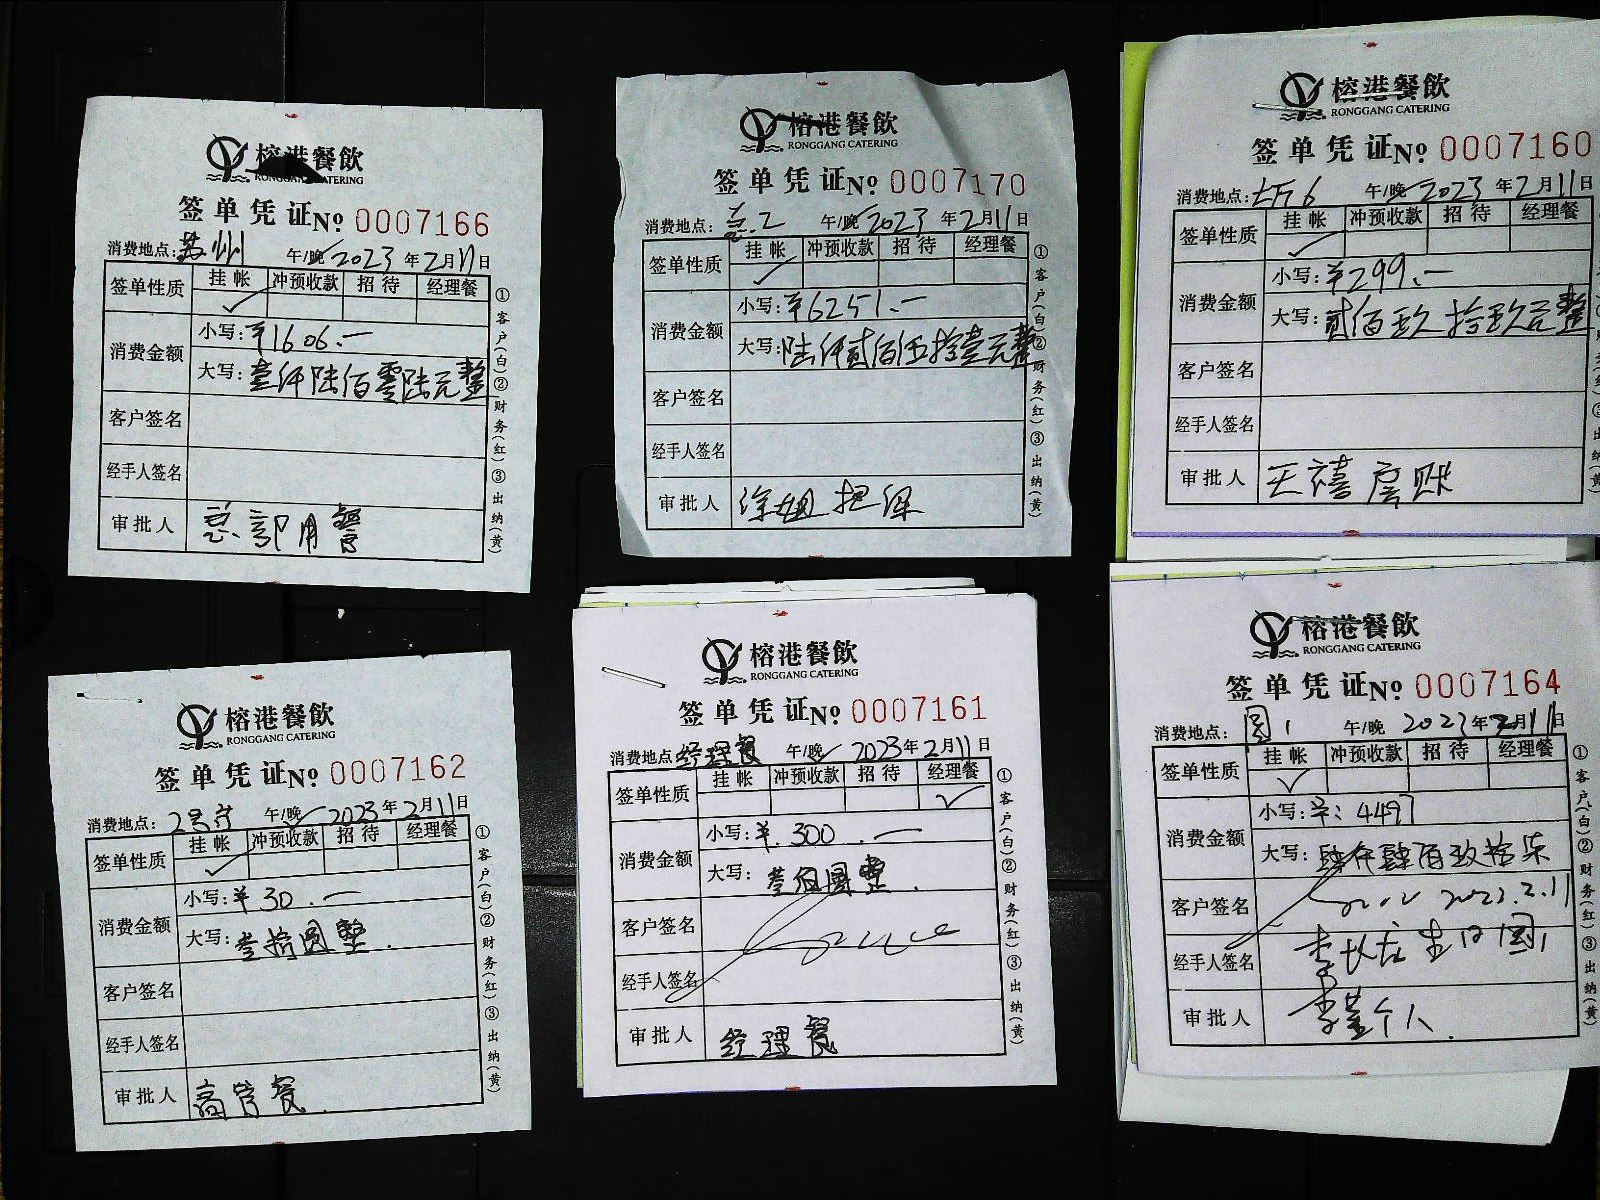 榕港餐飲
RONGGANG CATERING
签单凭证 № 0007166
消费地点: 苏州 午/晚 2023 年 2 月 11 日
签单性质 挂帐 冲预收款 招待 经理餐
✓
消费金额
小写: ¥1606.—
大写: 壹仟陆佰零陆元整
客户签名
经手人签名
审批人 总部用餐
①客户(白)②财务(红)③出纳(黄)
榕港餐飲
RONGGANG CATERING
签单凭证 № 0007170
消费地点: 午/晚 2023 年 2 月 11 日
签单性质 挂帐 冲预收款 招待 经理餐
✓
消费金额
小写: ¥6251.—
大写: 陆仟贰佰伍拾壹元整
客户签名
经手人签名
审批人 涂姐担保
①客户(白)②财务(红)③出纳(黄)
榕港餐飲
RONGGANG CATERING
签单凭证 № 0007160
消费地点: 午/晚 2023 年 2 月 11 日
签单性质 挂帐 冲预收款 招待 经理餐
✓
消费金额
小写: ¥299.—
大写: 贰佰玖拾玖元整
客户签名
经手人签名
审批人 王禧房账
榕港餐飲
RONGGANG CATERING
签单凭证 № 0007162
消费地点: 午/晚 2023 年 2 月 11 日
签单性质 挂帐 冲预收款 招待 经理餐
✓
消费金额
小写: ¥30.—
大写: 叁拾圆整.
客户签名
经手人签名
审批人 高管餐.
①客户(白)②财务(红)③出纳(黄)
榕港餐飲
RONGGANG CATERING
签单凭证 № 0007161
消费地点: 经理餐 午/晚 2023 年 2 月 11 日
签单性质 挂帐 冲预收款 招待 经理餐
✓
消费金额
小写: ¥.300.—
大写: 叁佰圆整.
客户签名
经手人签名
审批人 经理餐
①客户(白)②财务(红)③出纳(黄)
榕港餐飲
RONGGANG CATERING
签单凭证 № 0007164
消费地点: 圆1 午/晚 2023 年 2 月 11 日
签单性质 挂帐 冲预收款 招待 经理餐
✓
消费金额
小写: ¥: 4497
大写: 肆仟肆佰玖拾柒
客户签名 2023.2.11
经手人签名
审批人 李董个人
①客户(白)②财务(红)③出纳(黄)